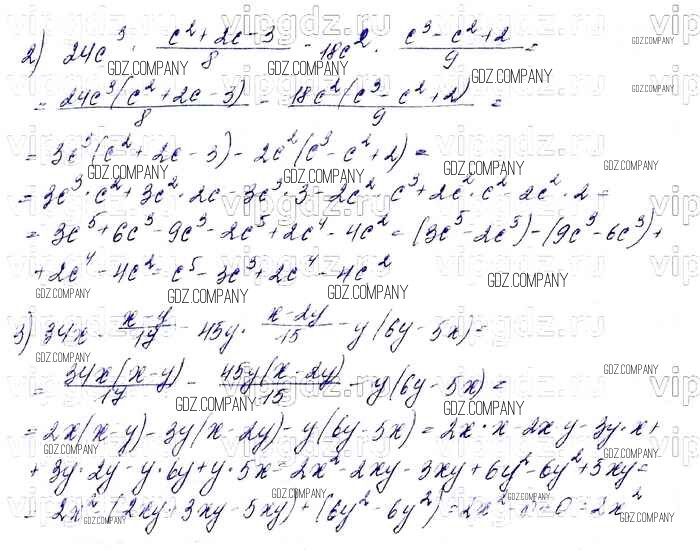 2) 24c³ · (c² + 2c − 3)/8 − 18c² · (c³ − c² + 2)/9 =
= 24c³(c² + 2c − 3)/8 − 18c²(c³ − c² + 2)/9 =
= 3c³(c² + 2c − 3) − 2c²(c³ − c² + 2) =
= 3c³ · c² + 3c² · 2c − 3c³ · 3 − 2c² · c³ + 2c² · c² − 2c² · 2 =
= 3c⁵ + 6c³ − 9c³ − 2c⁵ + 2c⁴ − 4c² = (3c⁵ − 2c⁵) − (9c³ − 6c³) +
+ 2c⁴ − 4c² = c⁵ − 3c³ + 2c⁴ − 4c²
3) 34x · (x − y)/17 − 45y · (x − 2y)/15 − y(6y − 5x) =
= 34x(x − y)/17 − 45y(x − 2y)/15 − y(6y − 5x) =
= 2x(x − y) − 3y(x − 2y) − y(6y − 5x) = 2x · x − 2xy − 3y · x +
+ 3y · 2y − y · 6y + y · 5x = 2x² − 2xy − 3xy + 6y² − 6y² + 5xy =
= 2x² − (2xy + 3xy − 5xy) + (6y² − 6y²) = 2x² − 0 − 0 = 2x²
vipgdz.ru
GDZ.COMPANY